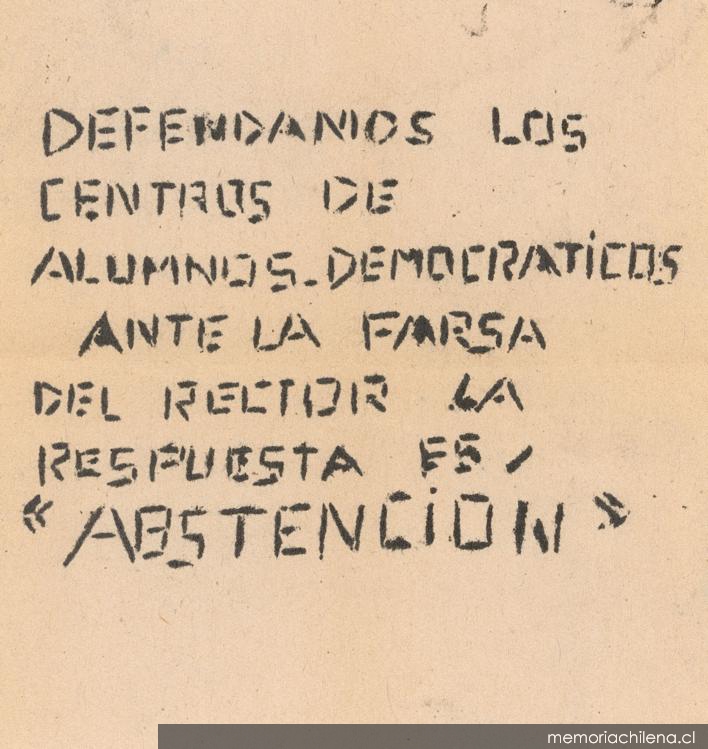 DEFENDAMOS LOS
CENTROS DE
ALUMNOS-DEMOCRATiCOS
ANTE LA FARSA
DEL RECTOR LA
RESPUESTA ES,
"ABSTENCiON"
memoriachilena.cl